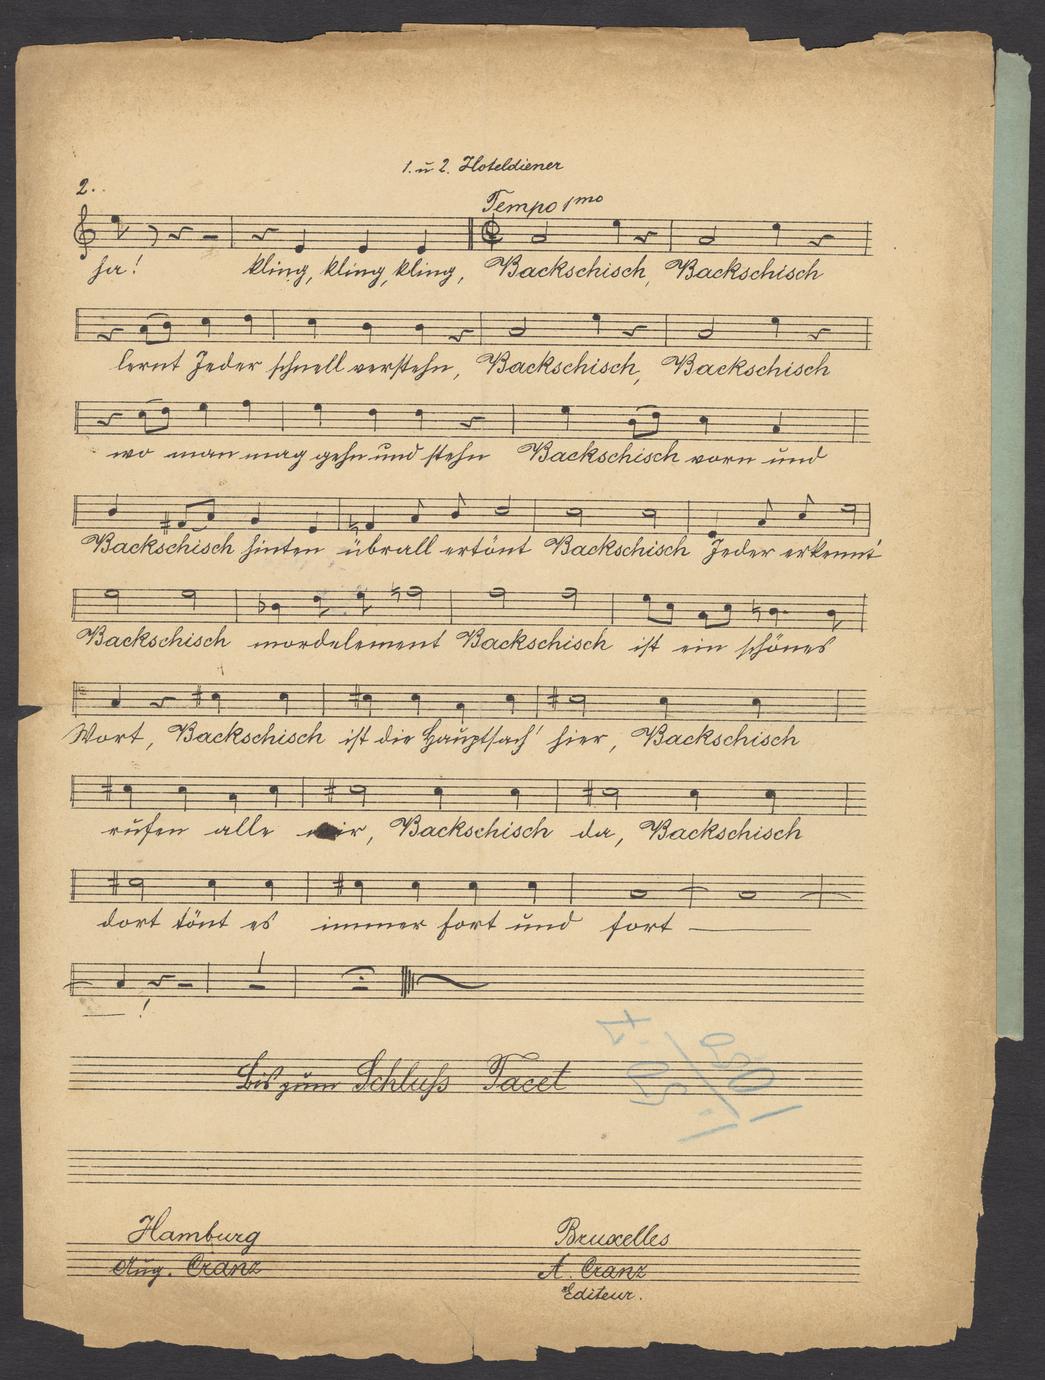 1. ū 2. Hoteldiener
2.
Tempo 1mo
ha! kling, kling, kling, Backschisch, Backschisch
lernt Jeder schnell verstehn, Backschisch, Backschisch
wo man mag gehn und stehn Backschisch vorn und
Backschisch hinten übrall ertönt Backschisch Jeder erkennt
Backschisch mordelement Backschisch ist ein schönes
Wort, Backschisch ist die Hauptsach' hier, Backschisch
rufen alle wir, Backschisch da, Backschisch
dort tönt es immer fort und fort
!
Bis zum Schluss Tacet
Hamburg
Aug. Cranz
Bruxelles
A. Cranz
Editeur.